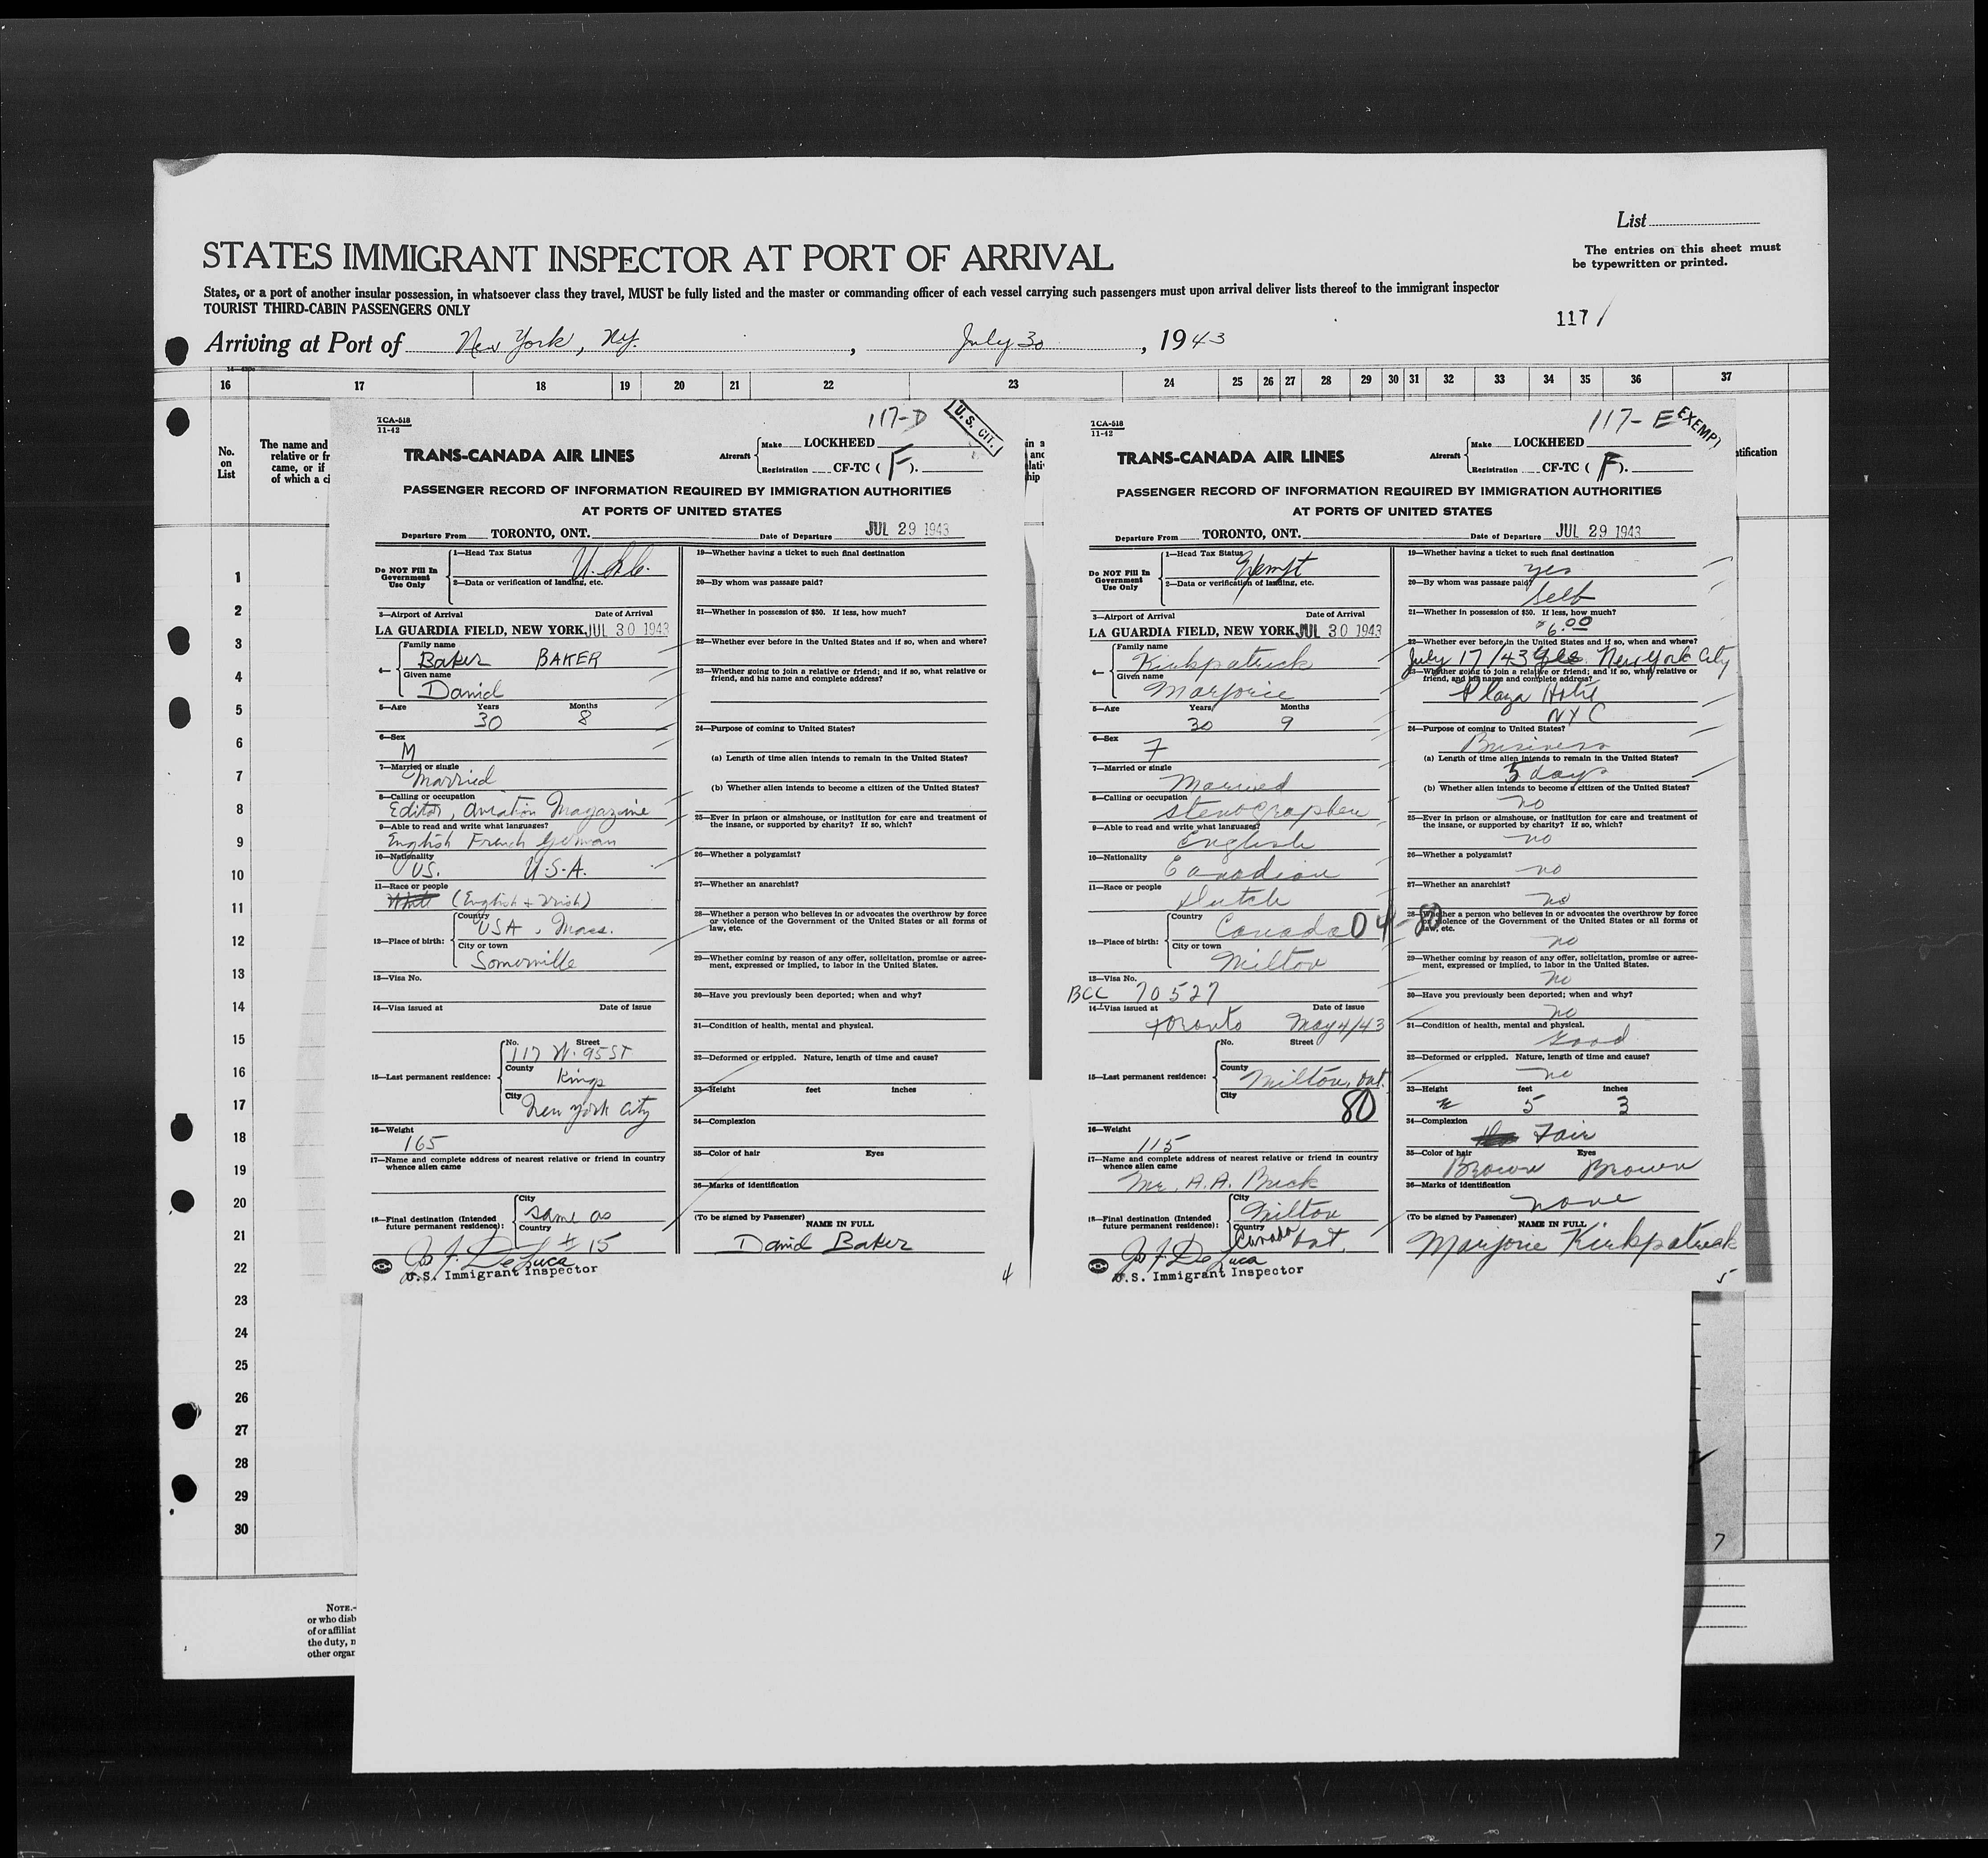 List
STATES IMMIGRANT INSPECTOR AT PORT OF ARRIVAL
The entries on this sheet must
be typewritten or printed.
States, or a port of another insular possession, in whatsoever class they travel, MUST be fully listed and the master or commanding officer of each vessel carrying such passengers must upon arrival deliver lists thereof to the immigrant inspector
TOURIST THIRD-CABIN PASSENGERS ONLY
117 /
Arriving at Port of New York, NY. , July 30 , 1943
16 17 18 19 20 21 22 23 24 25 26 27 28 29 30 31 32 33 34 35 36 37
No.
on
List
The name and
relative or fr
came, or if
of which a ci
tification
1
2
3
4
5
6
7
8
9
10
11
12
13
14
15
16
17
18
19
20
21
22
23
24
25
26
27
28
29
30
TCA-518
11-42
117-D
U.S. CIT.
TRANS-CANADA AIR LINES
Aircraft
Make LOCKHEED
Registration CF-TC ( F ).
PASSENGER RECORD OF INFORMATION REQUIRED BY IMMIGRATION AUTHORITIES
AT PORTS OF UNITED STATES
Departure From TORONTO, ONT. Date of Departure JUL 29 1943
Do NOT Fill In
Government
Use Only
1—Head Tax Status
2—Data or verification of landing, etc.
3—Airport of Arrival Date of Arrival
LA GUARDIA FIELD, NEW YORK, JUL 30 1943
4—
Family name
Baker BAKER
Given name
David
5—Age Years Months
30 8
6—Sex
M
7—Married or single
Married
8—Calling or occupation
Editor, Aviation Magazine
9—Able to read and write what languages?
English French German
10—Nationality
US. U.S.A.
11—Race or people
White (English + Irish)
12—Place of birth:
Country
USA, Mass.
City or town
Somerville
13—Visa No.
14—Visa issued at Date of issue
15—Last permanent residence:
No. Street
117 W. 95 ST
County
Kings
City
New York City
16—Weight
165
17—Name and complete address of nearest relative or friend in country
whence alien came
18—Final destination (Intended
future permanent residence):
City
Same as
Country
# 15
Jos J. DeLuca
U.S. Immigrant Inspector
19—Whether having a ticket to such final destination
20—By whom was passage paid?
21—Whether in possession of $50. If less, how much?
22—Whether ever before in the United States and if so, when and where?
23—Whether going to join a relative or friend; and if so, what relative or
friend, and his name and complete address?
24—Purpose of coming to United States?
(a) Length of time alien intends to remain in the United States?
(b) Whether alien intends to become a citizen of the United States?
25—Ever in prison or almshouse, or institution for care and treatment of
the insane, or supported by charity? If so, which?
26—Whether a polygamist?
27—Whether an anarchist?
28—Whether a person who believes in or advocates the overthrow by force
or violence of the Government of the United States or all forms of
law, etc.
29—Whether coming by reason of any offer, solicitation, promise or agree-
ment, expressed or implied, to labor in the United States.
30—Have you previously been deported; when and why?
31—Condition of health, mental and physical.
32—Deformed or crippled. Nature, length of time and cause?
33—Height feet inches
34—Complexion
35—Color of hair Eyes
36—Marks of identification
(To be signed by Passenger)
NAME IN FULL
David Baker
4
TCA-518
11-42
117-E
EXEMPT
TRANS-CANADA AIR LINES
Aircraft
Make LOCKHEED
Registration CF-TC ( F ).
PASSENGER RECORD OF INFORMATION REQUIRED BY IMMIGRATION AUTHORITIES
AT PORTS OF UNITED STATES
Departure From TORONTO, ONT. Date of Departure JUL 29 1943
Do NOT Fill In
Government
Use Only
1—Head Tax Status
Exempt
2—Data or verification of landing, etc.
3—Airport of Arrival Date of Arrival
LA GUARDIA FIELD, NEW YORK, JUL 30 1943
4—
Family name
Kirkpatrick
Given name
Marjorie
5—Age Years Months
30 9
6—Sex
F
7—Married or single
Married
8—Calling or occupation
Stenographer
9—Able to read and write what languages?
English
10—Nationality
Canadian
11—Race or people
Dutch
12—Place of birth:
Country
Canada 04-80
City or town
Milton
13—Visa No.
BCC 70527
14—Visa issued at Date of issue
Toronto May 4/43
15—Last permanent residence:
No. Street
County
Milton, Ont.
City
80
16—Weight
115
17—Name and complete address of nearest relative or friend in country
whence alien came
Mr. A.A. Buck
18—Final destination (Intended
future permanent residence):
City
Milton
Country
Canada Ont.
Jos J. DeLuca
U.S. Immigrant Inspector
19—Whether having a ticket to such final destination
yes
20—By whom was passage paid?
Self
21—Whether in possession of $50. If less, how much?
$6.00
22—Whether ever before in the United States and if so, when and where?
July 17/43 Yes. New York City
23—Whether going to join a relative or friend; and if so, what relative or
friend, and his name and complete address?
Plaza Hotel
NYC
24—Purpose of coming to United States?
Business
(a) Length of time alien intends to remain in the United States?
5 days
(b) Whether alien intends to become a citizen of the United States?
no
25—Ever in prison or almshouse, or institution for care and treatment of
the insane, or supported by charity? If so, which?
no
26—Whether a polygamist?
no
27—Whether an anarchist?
no
28—Whether a person who believes in or advocates the overthrow by force
or violence of the Government of the United States or all forms of
law, etc.
no
29—Whether coming by reason of any offer, solicitation, promise or agree-
ment, expressed or implied, to labor in the United States.
no
30—Have you previously been deported; when and why?
no
31—Condition of health, mental and physical.
Good
32—Deformed or crippled. Nature, length of time and cause?
no
33—Height feet inches
5 3
34—Complexion
Fair
35—Color of hair Eyes
Brown Brown
36—Marks of identification
none
(To be signed by Passenger)
NAME IN FULL
Marjorie Kirkpatrick
5
7
NOTE.—
or who disb
of or affiliat
the duty, n
other organ